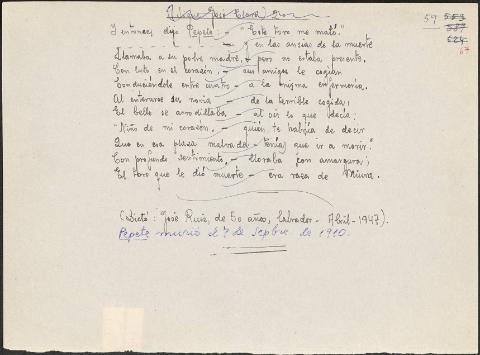 59
Y entonces dijo Pepete: - "Este toro me mató."
- y en las ansias de la muerte
Llamaba a su pobre madre, - pero no estaba presente.
Con luto en el corazón, - sus amigos le cogían
Conduciéndole entre cuatro - a la misma enfermería.
Al enterarse su novia - de la terrible cogida;
El bello se arrodillaba - al oír lo que decía;
"Niño de mi corazón, - quién te habría de decir
Que en esa plaza malvada - tenías que ir a morir."
Con profundo sentimiento, - lloraba con amargura;
El toro que le dió muerte - era raza de Miura.
(Dictó: José Ruiz, de 50 años, labrador - Abril - 1947).
Pepete murió el 7 de Sepbre de 1910.